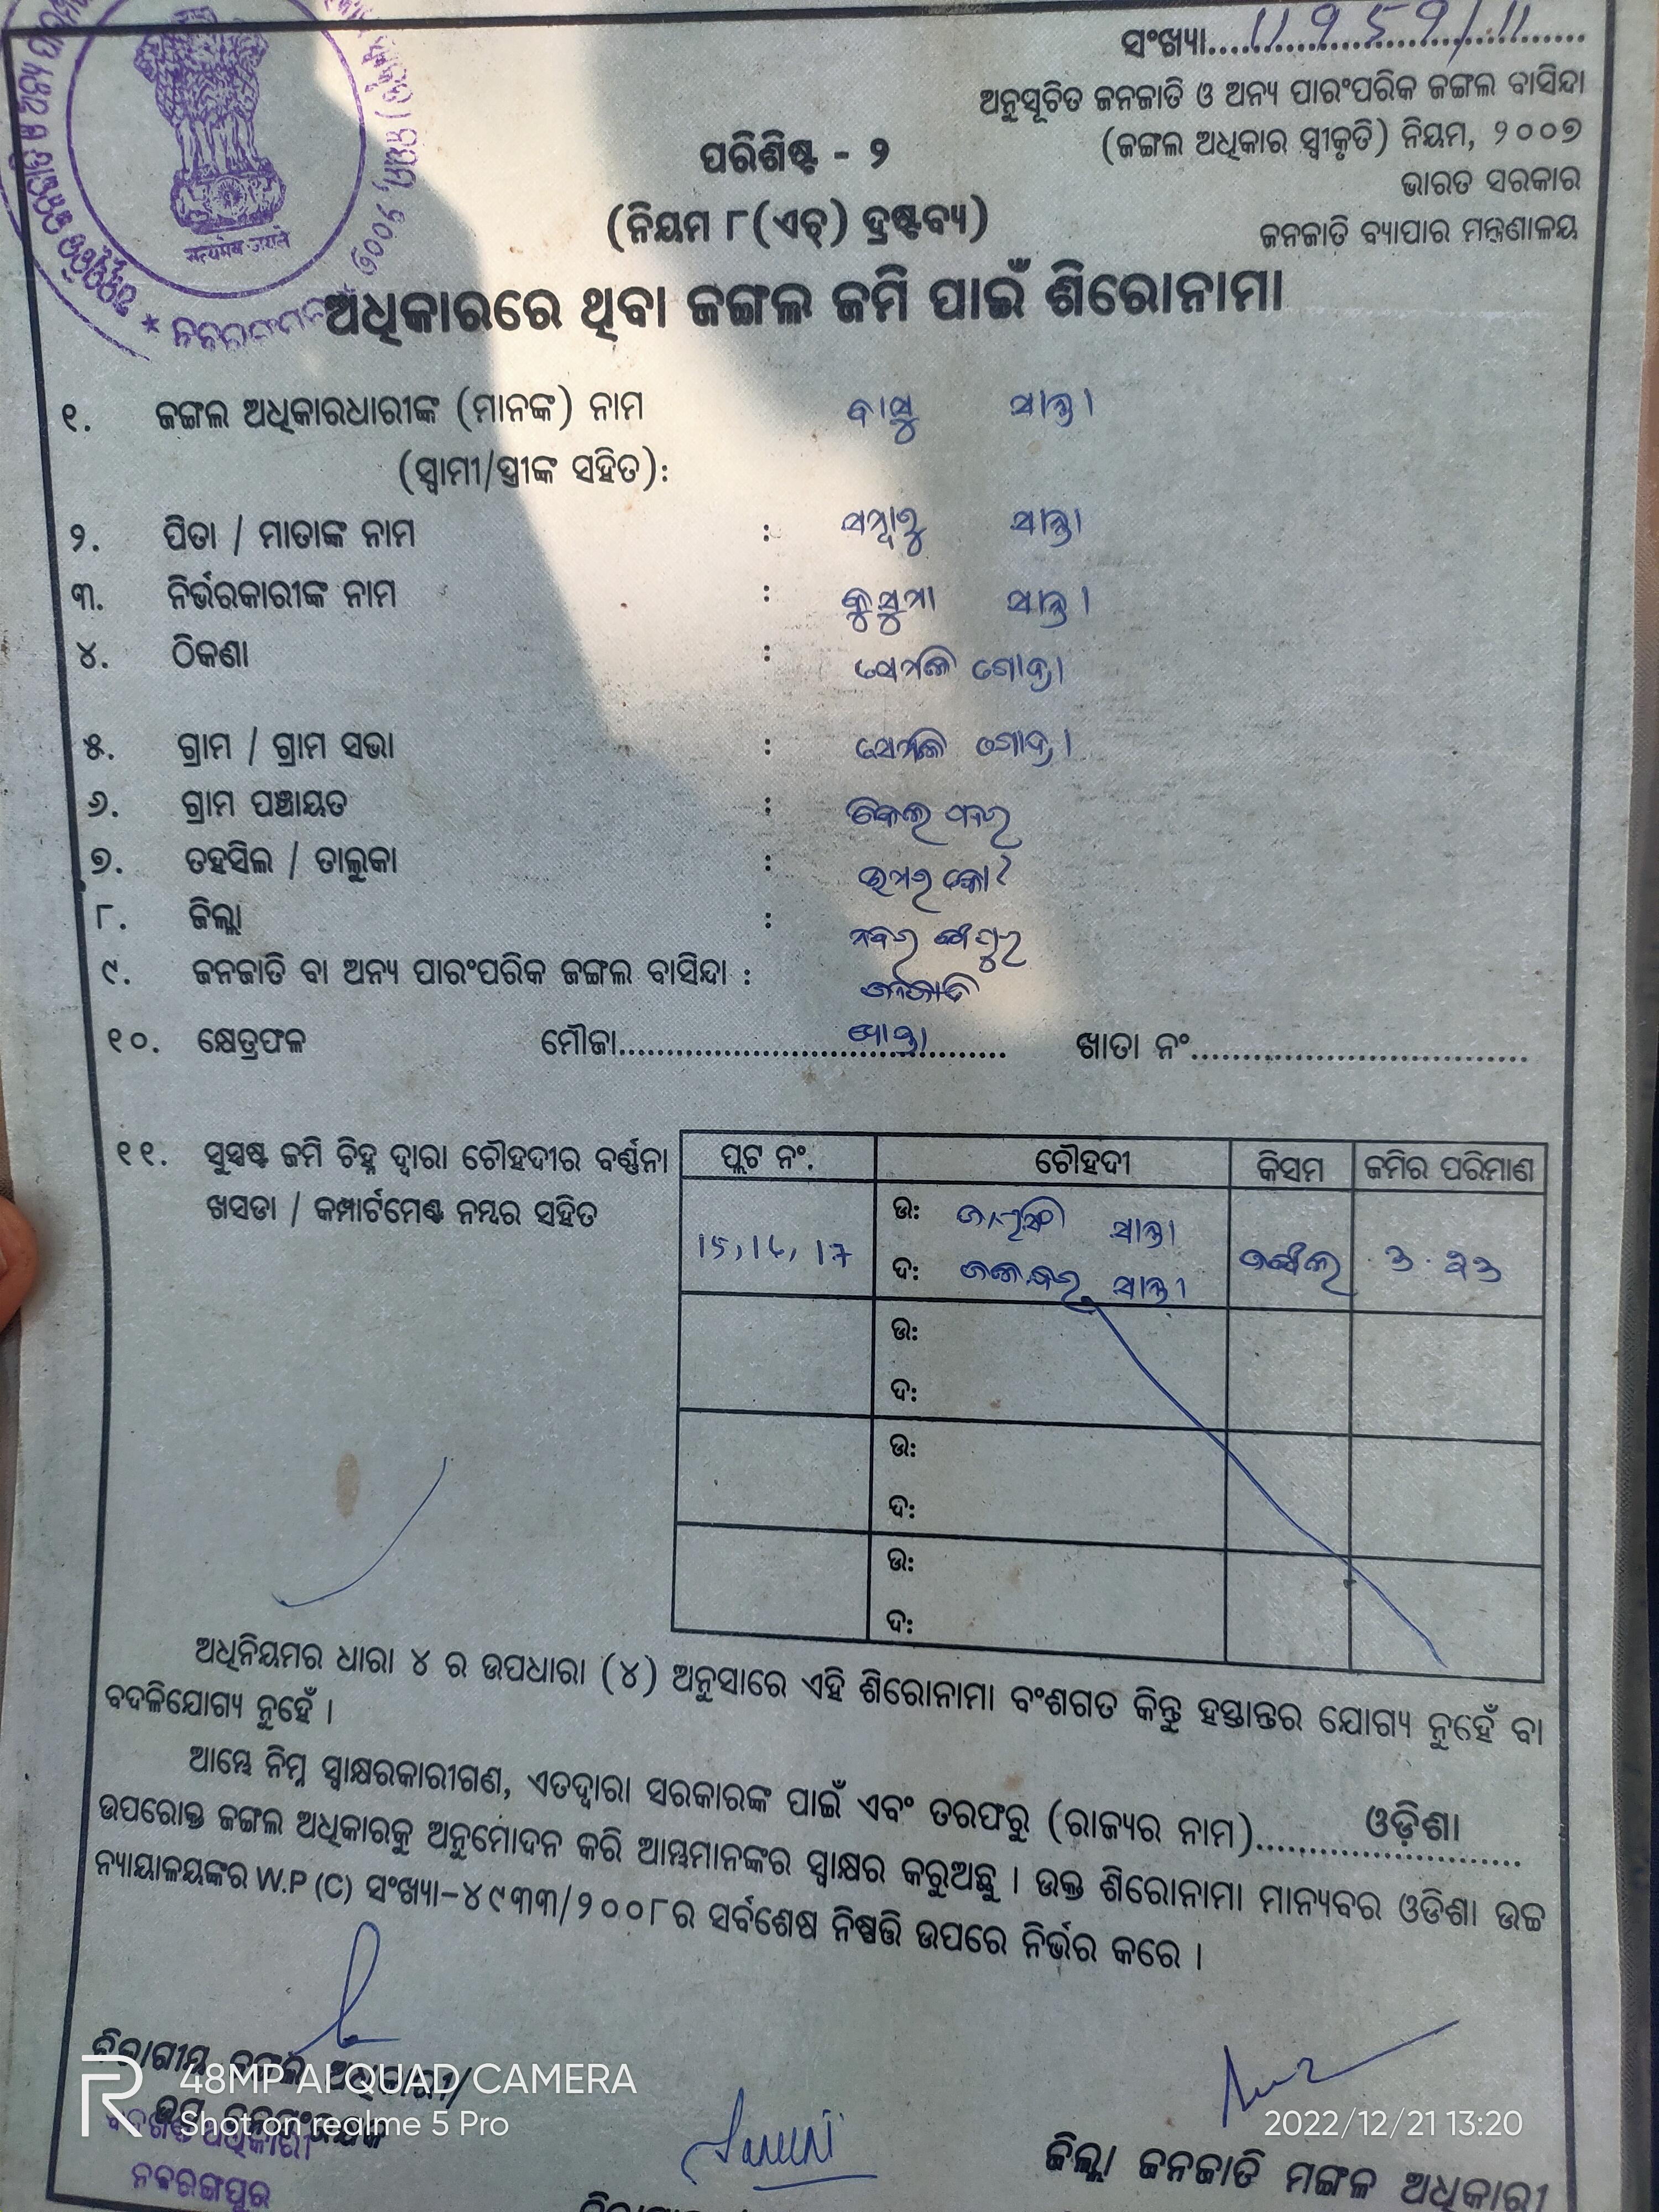 ସଂଖ୍ୟା
ଅନୁସୂଚିତ ଜନଜାତି ଓ ଅନ୍ୟ ପାରଂପରିକ ଜଙ୍ଗଲ ବାସିନ୍ଦା
(ଜଙ୍ଗଲ ଅଧିକାର ସ୍ୱୀକୃତି) ନିୟମ, ୨୦୦୭
ଭାରତ ସରକାର
ଜନଜାତି ବ୍ୟାପାର ମନ୍ତ୍ରଣାଳୟ
सत्यमेव जयते
ପରିଶିଷ୍ଟ - ୨
(ନିୟମ ୮(ଏଚ୍) ଦ୍ରଷ୍ଟବ୍ୟ)
ଅଧିକାରରେ ଥିବା ଜଙ୍ଗଲ ଜମି ପାଇଁ ଶିରୋନାମା
୧. ଜଙ୍ଗଲ ଅଧିକାରଧାରୀଙ୍କ (ମାନଙ୍କ) ନାମ ବାସୁ ସାନ୍ତା
(ସ୍ୱାମୀ/ସ୍ତ୍ରୀଙ୍କ ସହିତ):
୨. ପିତା / ମାତାଙ୍କ ନାମ : ସାନ୍ତା
୩. ନିର୍ଭରକାରୀଙ୍କ ନାମ : କୁସୁମା ସାନ୍ତା
୪. ଠିକଣା :
୫. ଗ୍ରାମ / ଗ୍ରାମ ସଭା :
୬. ଗ୍ରାମ ପଞ୍ଚାୟତ :
୭. ତହସିଲ / ତାଲୁକା : ଉମରକୋଟ
୮. ଜିଲ୍ଲା : ନବରଙ୍ଗପୁର
୯. ଜନଜାତି ବା ଅନ୍ୟ ପାରଂପରିକ ଜଙ୍ଗଲ ବାସିନ୍ଦା : ଜନଜାତି
୧୦. କ୍ଷେତ୍ରଫଳ ମୌଜା.................... ଖାତା ନଂ....................
୧୧. ସୁସ୍ପଷ୍ଟ ଜମି ଚିହ୍ନ ଦ୍ୱାରା ଚୌହଦୀର ବର୍ଣ୍ଣନା
ଖସଡା / କମ୍ପାର୍ଟମେଣ୍ଟ ନମ୍ବର ସହିତ
ପ୍ଲଟ ନଂ. ଚୌହଦୀ କିସମ ଜମିର ପରିମାଣ
15, 16, 17 ଉ: ସାନ୍ତା ଜଙ୍ଗଲ ୩.୨୩
ଦ: ସାନ୍ତା
ଉ:
ଦ:
ଉ:
ଦ:
ଉ:
ଦ:
ଅଧିନିୟମର ଧାରା ୪ ର ଉପଧାରା (୪) ଅନୁସାରେ ଏହି ଶିରୋନାମା ବଂଶଗତ କିନ୍ତୁ ହସ୍ତାନ୍ତର ଯୋଗ୍ୟ ନୁହେଁ ବା
ବଦଳିଯୋଗ୍ୟ ନୁହେଁ ।
ଆମ୍ଭେ ନିମ୍ନ ସ୍ୱାକ୍ଷରକାରୀଗଣ, ଏତଦ୍ଦ୍ୱାରା ସରକାରଙ୍କ ପାଇଁ ଏବଂ ତରଫରୁ (ରାଜ୍ୟର ନାମ)........ଓଡ଼ିଶା........
ଉପରୋକ୍ତ ଜଙ୍ଗଲ ଅଧିକାରକୁ ଅନୁମୋଦନ କରି ଆମ୍ଭମାନଙ୍କର ସ୍ୱାକ୍ଷର କରୁଅଛୁ । ଉକ୍ତ ଶିରୋନାମା ମାନ୍ୟବର ଓଡିଶା ଉଚ୍ଚ
ନ୍ୟାୟାଳୟଙ୍କର W.P (C) ସଂଖ୍ୟା-୪୯୩୩/୨୦୦୮ର ସର୍ବଶେଷ ନିଷ୍ପତ୍ତି ଉପରେ ନିର୍ଭର କରେ ।
ଅଧିକାରୀ/
ନବରଙ୍ଗପୁର
ଜିଲ୍ଲା ଜନଜାତି ମଙ୍ଗଳ ଅଧିକାରୀ
R 48MP AI QUAD CAMERA
Shot on realme 5 Pro
2022/12/21 13:20